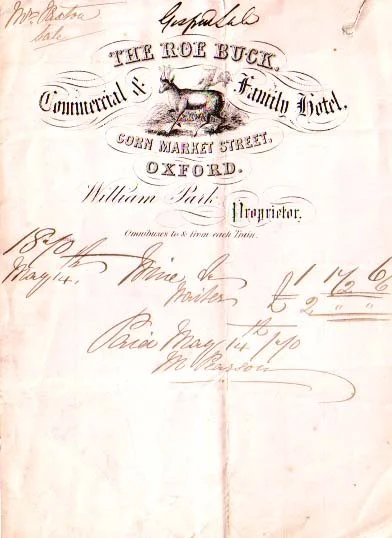 Sale
THE ROE BUCK.
Commercial & Family Hotel,
CORN MARKET STREET,
OXFORD.
William Park
Proprietor.
Omnibuses to & from each Train.
1870
May 14th Wine &c 1 17 6
Waiter 2 6
£ 2 " "
Paid May 14th /70
M Pearson